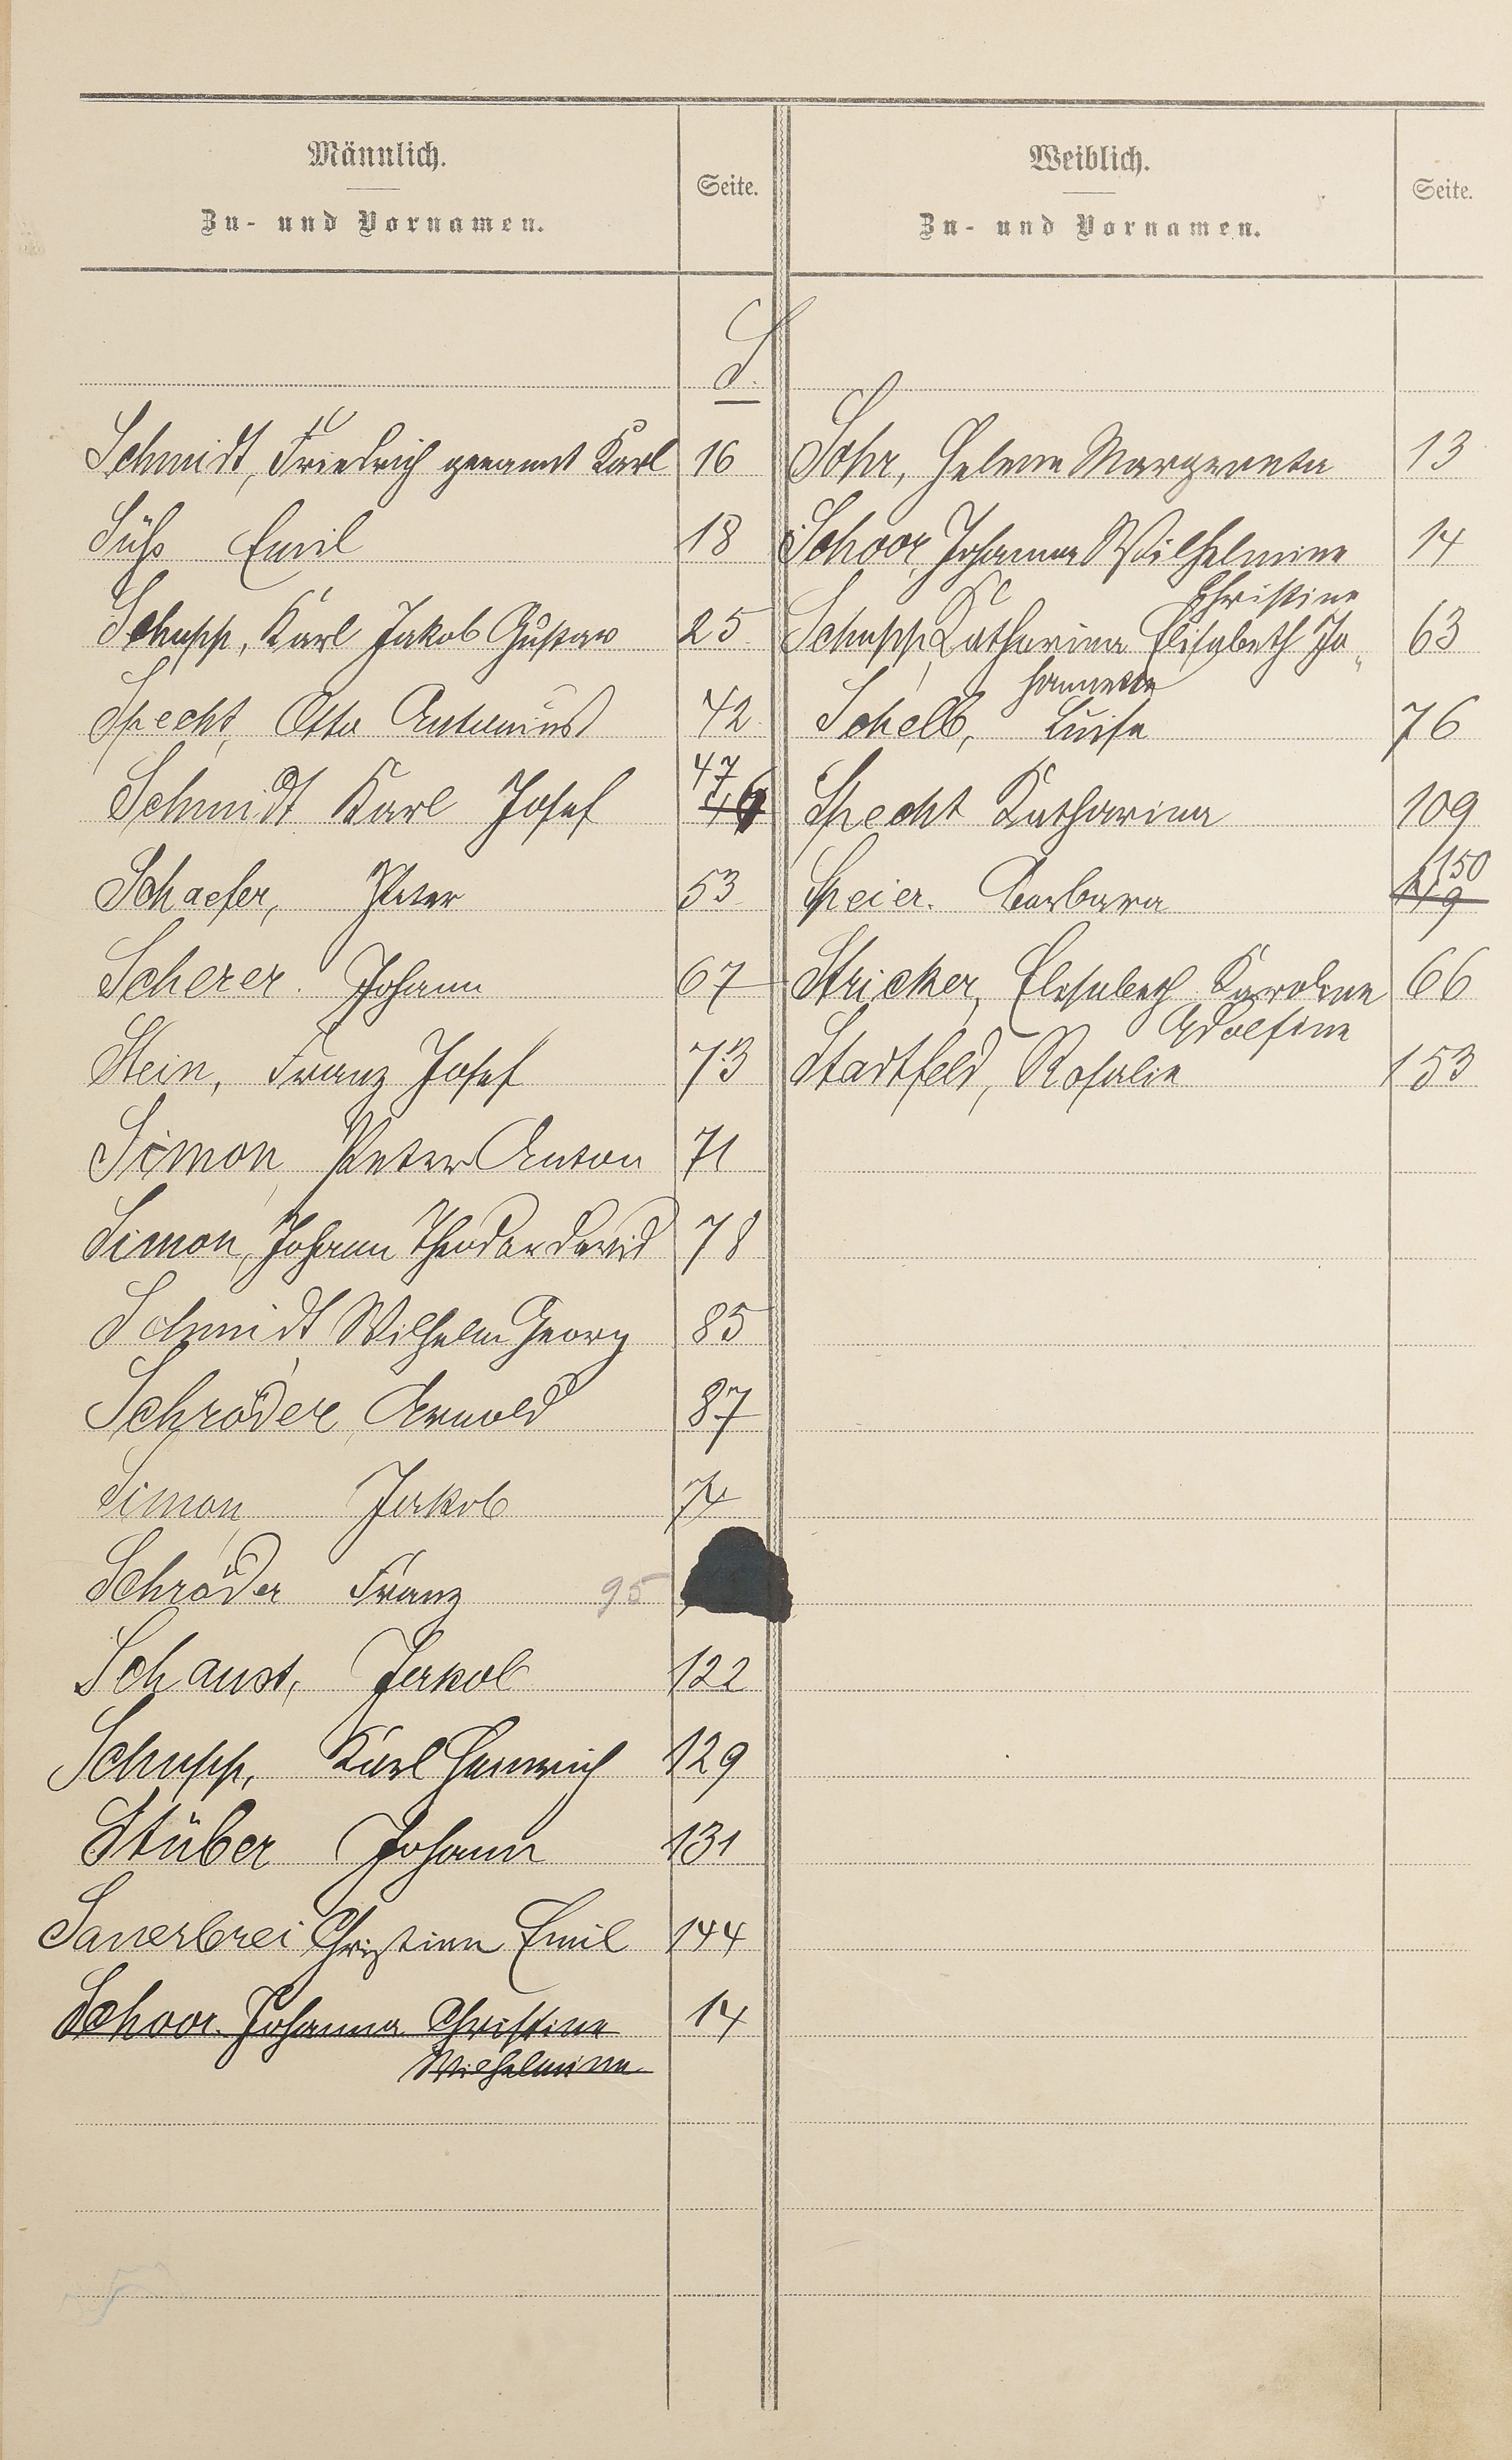 Männlich.
Zu- und Vornamen.
Seite.
Weiblich.
Zu- und Vornamen.
Seite.
S.
Schmidt, Friedrich genannt Karl 16
Süß Emil 18
Schupp, Karl Jakob Gustav 25
Specht, Otto Antonius 42
47
Schmidt Karl Josef 46
Schaefer, Peter 53
Scherer. Johann 67
Stein, Franz Josef 73
Simon, Peter Anton 71
Simon, Johann Theodor David 78
Schmidt, Wilhelm Georg 85
Schröder, Arnold 87
Simon, Jakob 74
Schröder Franz 95
Schaust, Jakob 122
Schupp, Karl Heinrich 129
Stüber Johann 131
Sauerbrei Christian Emil 144
Schoor. Johanna Christine 14
Wilhelmine
Sohr, Helene Margareta 13
Schoor, Johanna Wilhelmine 14
Christine
Schupp, Katharina Elisabeth Jo„ 63
hannette
Schelb, Luise 76
Specht Katharina 109
150
Speier. Barbara 119
Stricker, Elisabeth Karoline 66
Adolfine
Stadtfeld, Rosalie 153